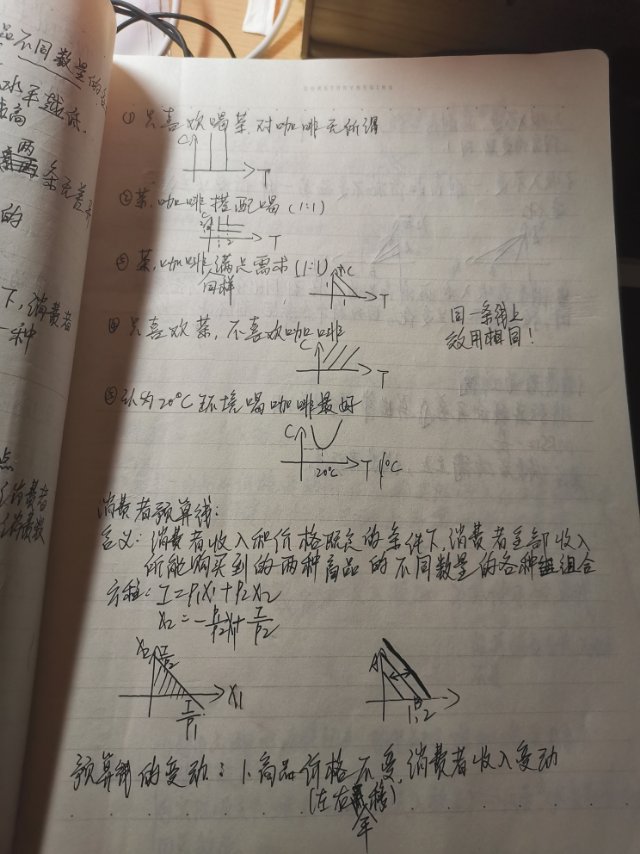 品不同数量的
水平越低
高
两
条无差异
的
下,消费者
一种
点
消费者
① 只喜欢喝茶,对咖啡无所谓
C
T
② 茶,咖啡搭配喝(1:1)
C
2
1
1 2
T
③ 茶,咖啡满足需求(1:1)
同样
C
1
1
T
同一条线上
效用相同!
④ 只喜欢茶,不喜欢咖啡
C
T
⑤ 认为20°C环境喝咖啡最好
C
20°C
T/°C
消费者预算线:
含义:消费者收入和价格既定的条件下,消费者全部收入
所能购买到的两种商品的不同数量的各种组合
方程:I=P₁X₁+P₂X₂
X₂=-P₁/P₂X₁+I/P₂
X₂
I/P₂
X₁
I/P₁
1:2
预算线的变动:1.商品价格不变,消费者收入变动
(左右平移)